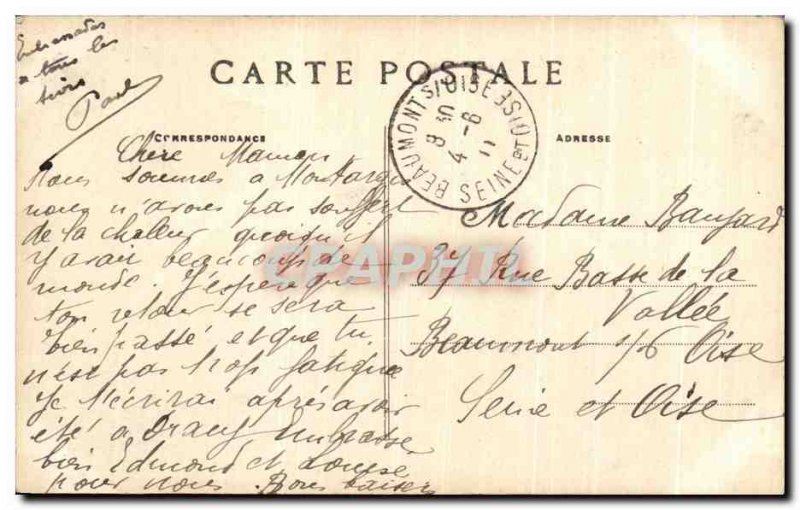 Embrassades
à tous les
tiens
Paul
CARTE POSTALE
CORRESPONDANCE
ADRESSE
BEAUMONT S/OISE
SEINE ET OISE
8 30
4 -6
11
Chère Maman
Nous sommes à Montargis
nous n'avons pas souffert
de la chaleur quoiqu'il
y avait beaucoup de
monde. J'espère que
ton retour se sera
bien passé et que tu
n'est pas trop fatiguée
Je t'écrirai après avoir
été à Embrasse
bien Edmond et Louise
pour nous. Bons baisers
Madame
37 Rue Basse de la
Vallée
Beaumont s/o Oise
Seine et Oise
CPAPHIL